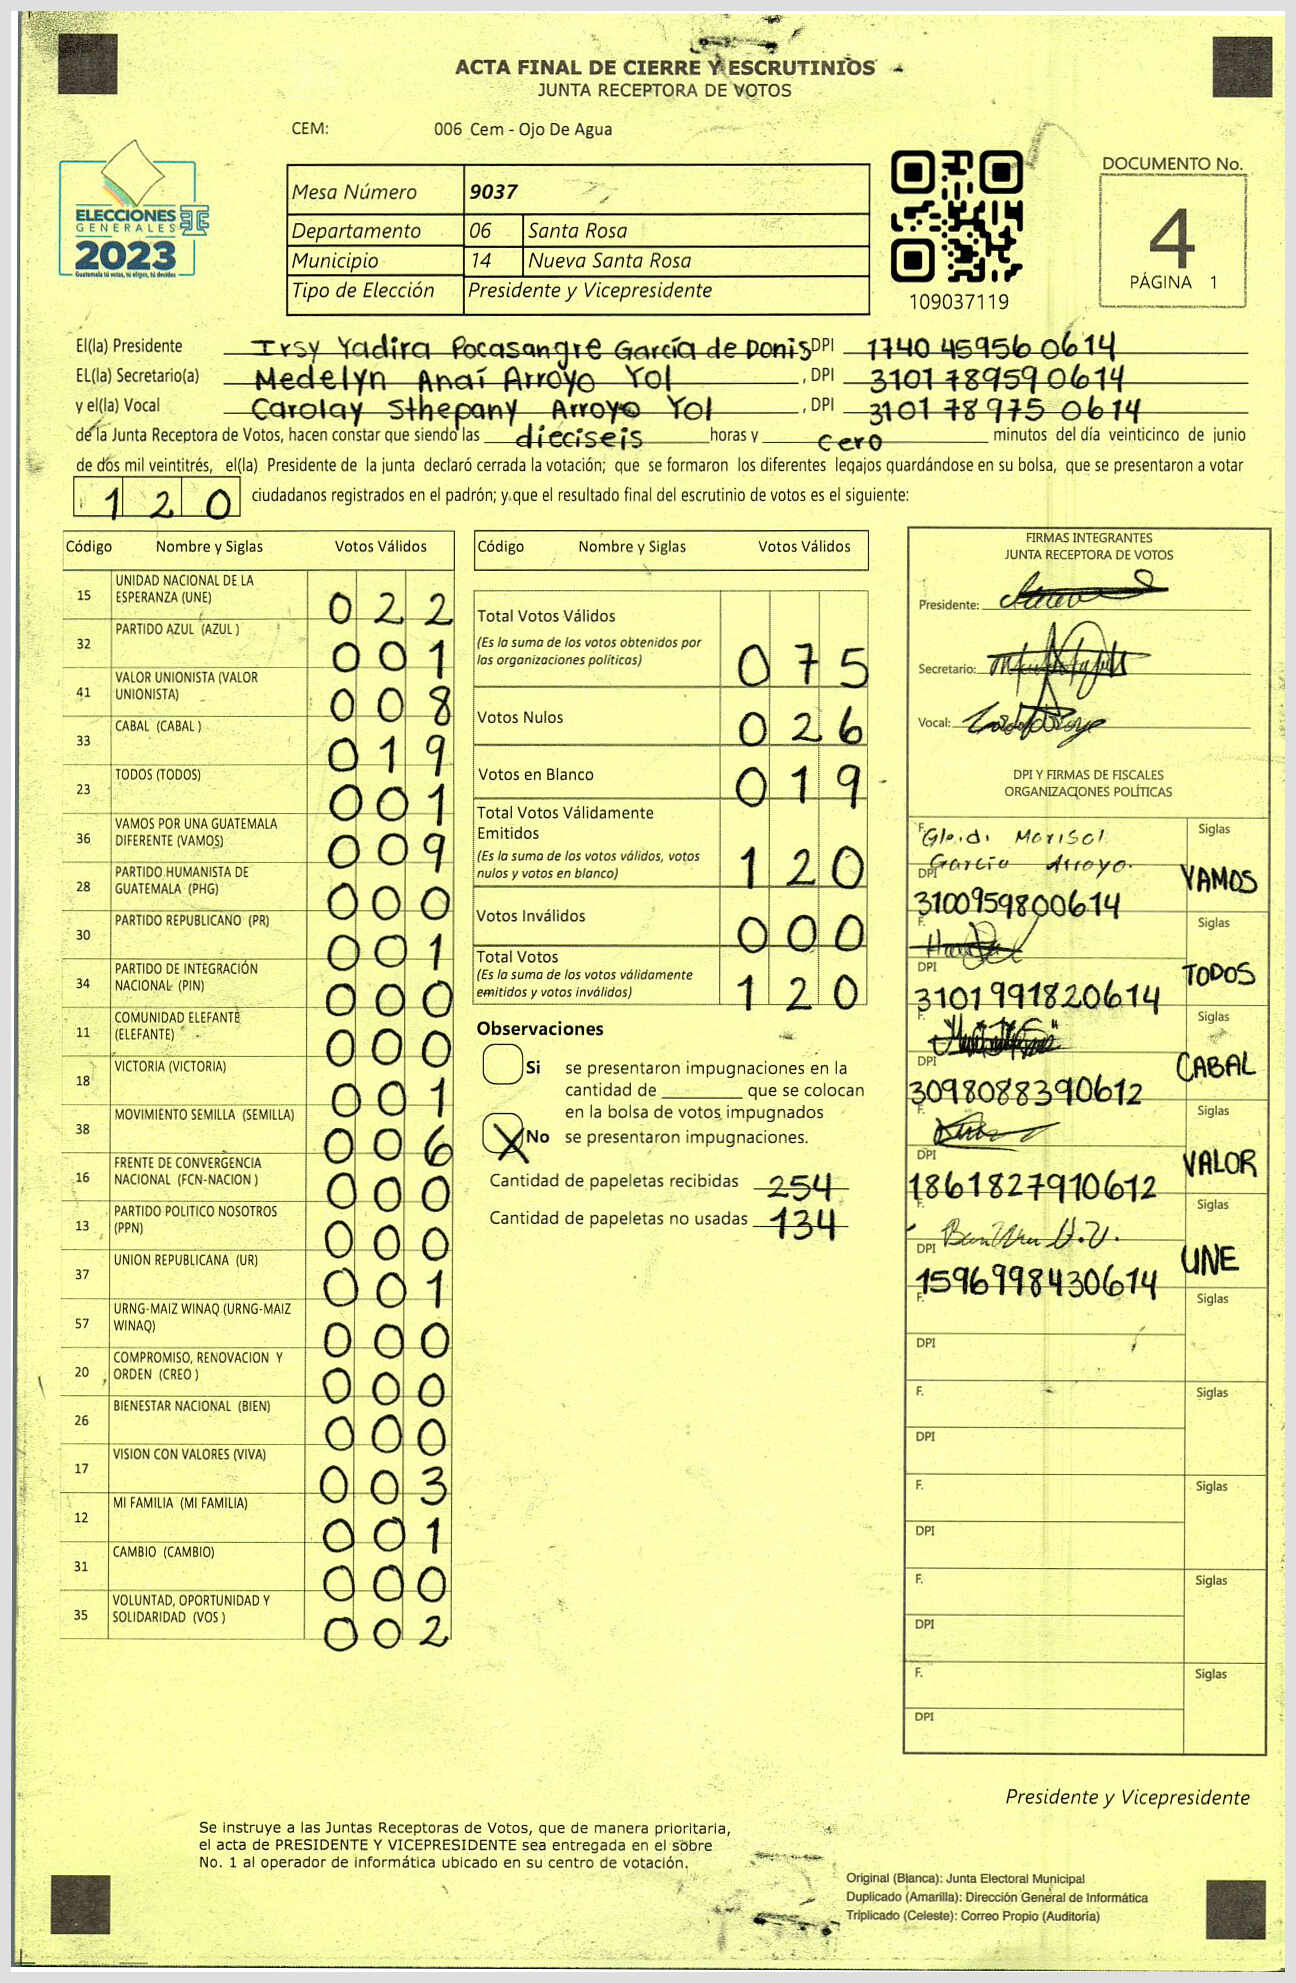 ACTA FINAL DE CIERRE Y ESCRUTINIOS
JUNTA RECEPTORA DE VOTOS
CEM: 006 Cem - Ojo De Agua
ELECCIONES
GENERALES
2023
Guatemala tú votas, tú eliges, tú decides
Mesa Número 9037
Departamento 06 Santa Rosa
Municipio 14 Nueva Santa Rosa
Tipo de Elección Presidente y Vicepresidente
109037119
DOCUMENTO No.
4
PÁGINA 1
El(la) Presidente Irsy Yadira Pocasangre García de Donis DPI 1740 45956 0614
EL(la) Secretario(a) Medelyn Anaí Arroyo Yol , DPI 3101 78959 0614
y el(la) Vocal Carolay Sthepany Arroyo Yol , DPI 3101 78975 0614
de la Junta Receptora de Votos, hacen constar que siendo las dieciseis horas y cero minutos del día veinticinco de junio
de dos mil veintitrés, el(la) Presidente de la junta declaró cerrada la votación; que se formaron los diferentes legajos guardándose en su bolsa, que se presentaron a votar
120 ciudadanos registrados en el padrón; y que el resultado final del escrutinio de votos es el siguiente:
Código Nombre y Siglas Votos Válidos
15 UNIDAD NACIONAL DE LA
ESPERANZA (UNE) 022
32 PARTIDO AZUL (AZUL ) 001
41 VALOR UNIONISTA (VALOR
UNIONISTA) 008
33 CABAL (CABAL ) 019
23 TODOS (TODOS) 001
36 VAMOS POR UNA GUATEMALA
DIFERENTE (VAMOS) 009
28 PARTIDO HUMANISTA DE
GUATEMALA (PHG) 000
30 PARTIDO REPUBLICANO (PR) 001
34 PARTIDO DE INTEGRACIÓN
NACIONAL (PIN) 000
11 COMUNIDAD ELEFANTE
(ELEFANTE) 000
18 VICTORIA (VICTORIA) 001
38 MOVIMIENTO SEMILLA (SEMILLA) 006
16 FRENTE DE CONVERGENCIA
NACIONAL (FCN-NACION ) 000
13 PARTIDO POLITICO NOSOTROS
(PPN) 000
37 UNION REPUBLICANA (UR) 001
57 URNG-MAIZ WINAQ (URNG-MAIZ
WINAQ) 000
20 COMPROMISO, RENOVACION Y
ORDEN (CREO ) 000
26 BIENESTAR NACIONAL (BIEN) 000
17 VISION CON VALORES (VIVA) 003
12 MI FAMILIA (MI FAMILIA) 001
31 CAMBIO (CAMBIO) 000
35 VOLUNTAD, OPORTUNIDAD Y
SOLIDARIDAD (VOS ) 002
Código Nombre y Siglas Votos Válidos
Total Votos Válidos
(Es la suma de los votos obtenidos por
las organizaciones políticas) 075
Votos Nulos 026
Votos en Blanco 019
Total Votos Válidamente
Emitidos
(Es la suma de los votos válidos, votos
nulos y votos en blanco) 120
Votos Inválidos 000
Total Votos
(Es la suma de los votos válidamente
emitidos y votos inválidos) 120
Observaciones
Si se presentaron impugnaciones en la
cantidad de que se colocan
en la bolsa de votos impugnados
X No se presentaron impugnaciones.
Cantidad de papeletas recibidas 254
Cantidad de papeletas no usadas 134
FIRMAS INTEGRANTES
JUNTA RECEPTORA DE VOTOS
Presidente:
Secretario:
Vocal:
DPI Y FIRMAS DE FISCALES
ORGANIZACIONES POLÍTICAS
F. Marisol Siglas
García Arroyo.
DPI 3100959800614 VAMOS
F. Siglas
DPI 3101991820614 TODOS
F. Siglas
DPI 3098088390612 CABAL
F. Siglas
DPI 1861827910612 VALOR
F. Siglas
DPI 1596998430614 UNE
F. Siglas
DPI
F. Siglas
DPI
F. Siglas
DPI
F. Siglas
DPI
F. Siglas
DPI
Presidente y Vicepresidente
Se instruye a las Juntas Receptoras de Votos, que de manera prioritaria,
el acta de PRESIDENTE Y VICEPRESIDENTE sea entregada en el sobre
No. 1 al operador de informática ubicado en su centro de votación.
Original (Blanca): Junta Electoral Municipal
Duplicado (Amarilla): Dirección General de Informática
Triplicado (Celeste): Correo Propio (Auditoría)